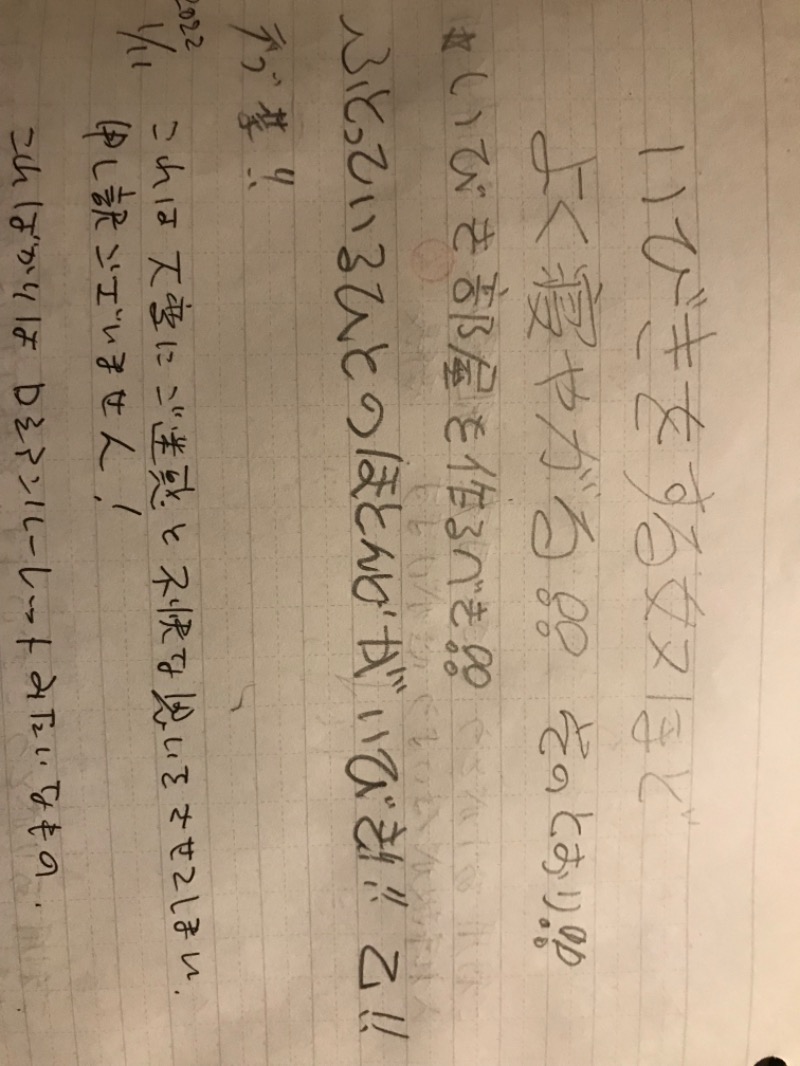 いびきをするヤツほど
よく寝やがる!! そのとおり!!
いびき部屋を作るべき!!
ふとっているひとのほとんどがいびき!! 乙!!
デブ禁!!
2022
1/11
これは大変にご迷惑と不快な思いをさせてしまい、
申し訳ございません!
こればかりはロシアンルーレットみたいなもの、